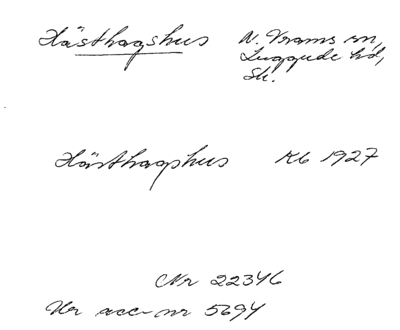 Hästhagshus N. Vrams sn,
Luggude hd,
Sk.
Hästhagshus Kb 1927
Nr 22346
Ur acc-nr 5694